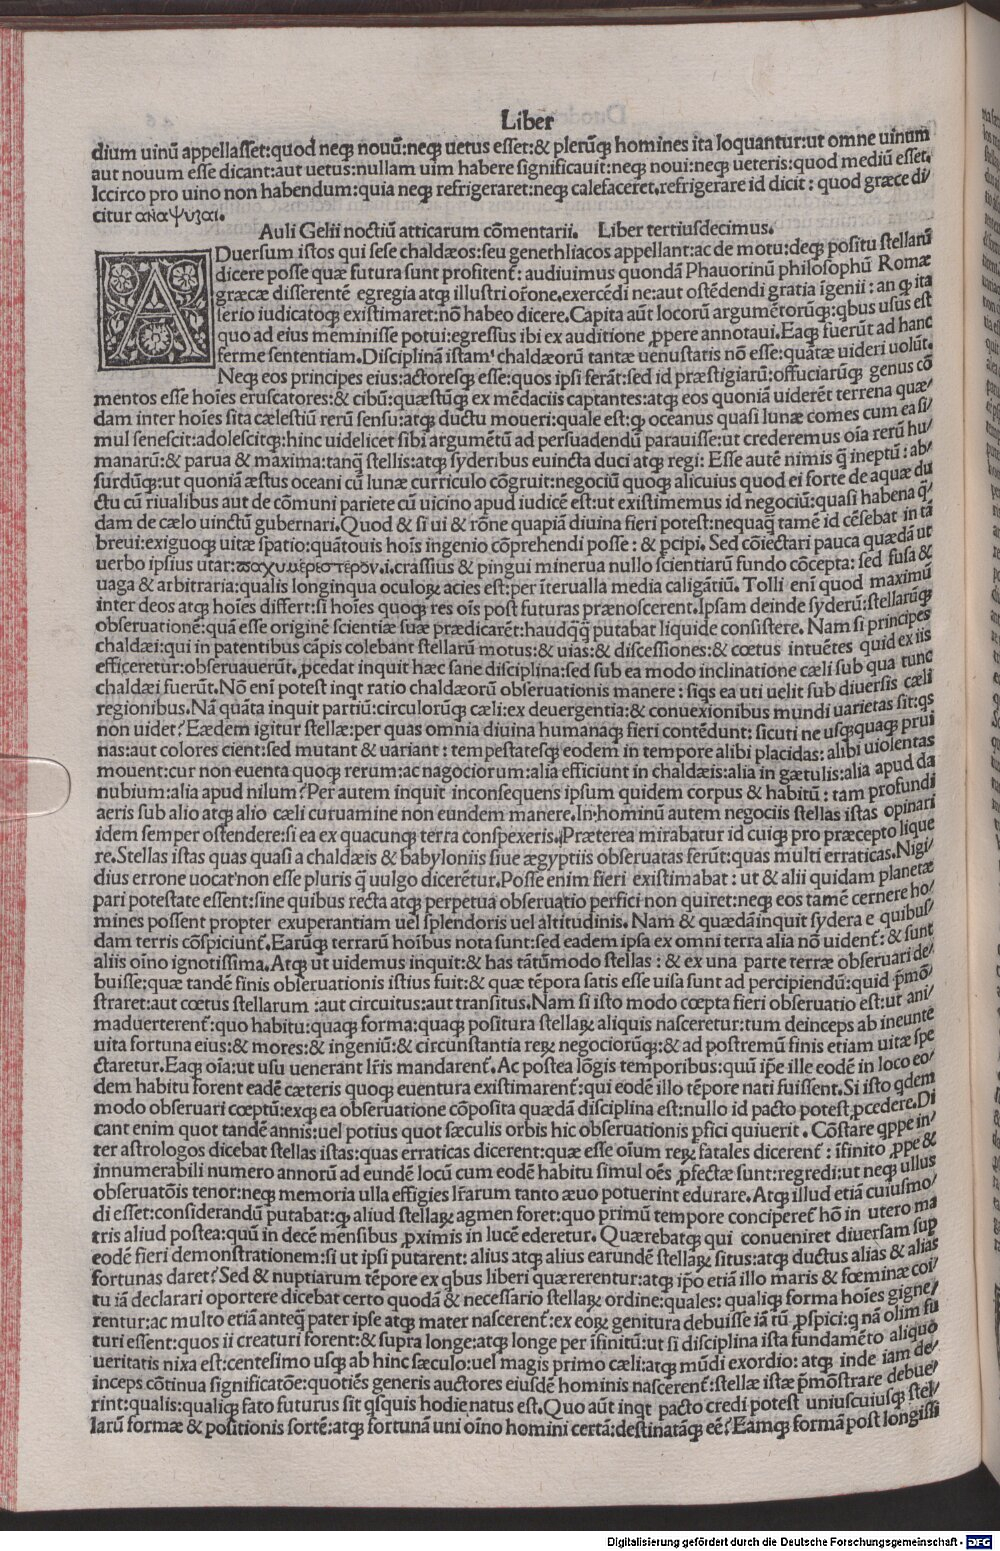 Liber
dium uinũ appellasset:quod neqꝫ nouũ:neqꝫ uetus esset:& plerũqꝫ homines ita loquantur:ut omne uinum
aut nouum esse dicant:aut uetus:nullam uim habere significauit:neqꝫ noui:neqꝫ ueteris:quod mediũ esset.
Iccirco pro uino non habendum:quia neqꝫ refrigeraret:neqꝫ calefaceret.refrigerare id dicit : quod græce di/
citur αναψυξαι.
Auli Gelii noctiũ atticarum cõmentarii. Liber tertiusdecimus.
ADuersum istos qui sese chaldæos:seu genethliacos appellant:ac de motu:deqꝫ positu stellarũ
dicere posse quæ futura sunt profitent᷑: audiuimus quondã Phauorinũ philosophũ Romæ
græcæ disserentẽ egregia atqꝫ illustri or̃one.exercẽdi ne:aut ostẽdendi gratia ĩgenii : an ꝙ ita
serio iudicatoqꝫ existimaret:nõ habeo dicere.Capita aũt locorũ argumẽtorũqꝫ:qbus usus est
quo ad eius meminisse potui:egressus ibi ex auditione ꝓpere annotaui.Eaqꝫ fuerũt ad hanc
ferme sententiam.Disciplinã istam chaldæorũ tantæ uenustatis nõ esse:quãtæ uideri uolũt.
Neqꝫ eos principes eius:actoresqꝫ esse:quos ipsi ferãt:sed id præstigiarũ:offuciarũqꝫ genus cõ
mentos esse hoĩes eruscatores:& cibũ:quæstũqꝫ ex mẽdaciis captantes:atqꝫ eos quoniã uiderẽt terrena quæ/
dam inter hoĩes sita cælestiũ rerũ sensu:atqꝫ ductu moueri:quale est:ꝙ oceanus quasi lunæ comes cum ea si/
mul senescit:adolescitqꝫ:hinc uidelicet sibi argumẽtũ ad persuadendũ parauisse:ut crederemus oĩa rerũ hu/
manarũ:& parua & maxima:tanq̃ stellis:atqꝫ syderibus euincta duci atqꝫ regi: Esse autẽ nimis q̃ ineptũ : ab/
surdũqꝫ:ut quoniã æstus oceani cũ lunæ curriculo cõgruit:negociũ quoqꝫ alicuius quod ei forte de aquæ du
ctu cũ riualibus aut de cõmuni pariete cũ uicino apud iudicẽ est:ut existimemus id negociũ:quasi habena q̃/
dam de cælo uinctũ gubernari.Quod & si ui & rõne quapiã diuina fieri potest:nequaq̃ tamẽ id cẽsebat in tã
breui:exiguoqꝫ uitæ spatio:quãtouis hoĩs ingenio cõprehendi posse : & ꝑcipi. Sed cõiectari pauca quædã ut
uerbo ipsius utar:παχυμερεστερον.i.crassius & pingui minerua nullo scientiarũ fundo cõcepta: sed fusa &
uaga & arbitraria:qualis longinqua oculoꝝ acies est:per ĩterualla media caligãtiũ. Tolli enĩ quod maximũ
inter deos atqꝫ hoĩes differt:si hoĩes quoqꝫ res oĩs post futuras prænoscerent.Ipsam deinde syderũ:stellarũqꝫ
obseruationẽ:quã esse originẽ scientiæ suæ prædicarẽt:haudq̃q̃ putabat liquide consistere. Nam si principes
chaldæi:qui in patentibus cãpis colebant stellarũ motus:& uias:& discessiones:& cœtus intuẽtes quid ex iis
efficeretur:obseruauerũt.ꝓcedat inquit hæc sane disciplina:sed sub ea modo inclinatione cæli sub qua tunc
chaldæi fuerũt.Nõ enĩ potest inqt ratio chaldæorũ obseruationis manere : siqs ea uti uelit sub diuersis cæli
regionibus.Nã quãta inquit partiũ:circulorũqꝫ cæli:ex deuergentia:& conuexionibus mundi uarietas sit:qs
non uidet? Eædem igitur stellæ:per quas omnia diuina humanaqꝫ fieri contẽdunt: sicuti ne usqꝫquaqꝫ prui
nas:aut colores cient:sed mutant & uariant : tempestatesqꝫ eodem in tempore alibi placidas: alibi uiolentas
mouent:cur non euenta quoqꝫ rerum:ac nagociorum:alia efficiunt in chaldæis:alia in gætulis:alia apud da
nubium:alia apud nilum?Per autem inquit inconsequens ipsum quidem corpus & habitũ : tam profundi
aeris sub alio atqꝫ alio cæli curuamine non eundem manere.In hominũ autem negociis stellas istas opinari
idem semper ostendere:si ea ex quacunqꝫ terra conspexeris.Præterea mirabatur id cuiqꝫ pro præcepto lique
re.Stellas istas quas quasi a chaldæis & babyloniis siue ægyptiis obseruatas ferũt:quas multi erraticas.Nigi/
dius errone uocat᷑non esse pluris q̃ uulgo dicerẽtur.Posse enim fieri existimabat : ut & alii quidam planetæ
pari potestate essent:sine quibus recta atqꝫ perpetua obseruatio perfici non quiret:neqꝫ eos tamẽ cernere ho/
mines possent propter exuperantiam uel splendoris uel altitudinis. Nam & quædã inquit sydera e quibus/
dam terris cõspiciunt᷑.Earũqꝫ terrarũ hoĩbus nota sunt:sed eadem ipsa ex omni terra alia nõ uident᷑: & sunt
aliis oĩno ignotissima.Atqꝫ ut uidemus inquit:& has tãtũmodo stellas : & ex una parte terræ obseruari de/
buisse:quæ tandẽ finis obseruationis istius fuit:& quæ tẽpora satis esse uisa sunt ad percipiendũ:quid p̃mõ/
straret:aut cœtus stellarum :aut circuitus:aut transitus.Nam si isto modo cœpta fieri obseruatio est:ut ani/
maduerterent᷑:quo habitu:quaqꝫ forma:quaqꝫ positura stellaꝝ aliquis nasceretur:tum deinceps ab ineunte
uita fortuna eius:& mores:& ingeniũ:& circunstantia reꝝ negociorũqꝫ:& ad postremũ finis etiam uitæ spe
ctaretur.Eaqꝫ oĩa:ut usu uenerant lr̃is mandarent᷑.Ac postea lõgis temporibus:quũ ip̃e ille eodẽ in loco eo/
dem habitu forent eadẽ cæteris quoqꝫ euentura existimarent᷑:qui eodẽ illo tẽpore nati fuissent.Si isto qdem
modo obseruari cœptũ:exqꝫ ea obseruatione cõposita quædã disciplina est:nullo id pacto potest ꝓcedere.Di
cant enim quot tandẽ annis:uel potius quot sæculis orbis hic obseruationis ꝑfici quiuerit . Cõstare qppe in/
ter astrologos dicebat stellas istas:quas erraticas dicerent:quæ esse oĩum reꝝ fatales dicerent᷑ : ĩfinito ,ppe &
innumerabili numero annorũ ad eundẽ locũ cum eodẽ habitu simul oẽs ,pfectæ sunt:regredi:ut neqꝫ ullus
obseruatõis tenor:neqꝫ memoria ulla effigies lr̃arum tanto æuo potuerint edurare.Atqꝫ illud etiã cuiusmo/
di esset:considerandũ putabat:ꝙ aliud stellaꝝ agmen foret:quo primũ tempore conciperet᷑ hõ in utero ma
tris aliud postea:quũ in decẽ mẽnsibus ꝓximis in lucẽ ederetur. Quærebatqꝫ qui conueniret diuersam sup
eodẽ fieri demonstrationem:si ut ipsi putarent: alius atqꝫ alius earundẽ stellaꝝ situs:atqꝫ ductus alias & alias
fortunas daret? Sed & nuptiarum tẽpore ex qbus liberi quærerentur:atqꝫ ip̃o etiã illo maris & fœminæ coi/
tu iã declarari oportere dicebat certo quodã & necessario stellaꝝ ordine:quales: qualiqꝫ forma hoĩes gigne/
rentur:ac multo etiã anteq̃ pater ipse atqꝫ mater nascerent᷑:ex eoꝝ genitura debuisse iã tũ ꝓspici:q nã olim fu
turi essent:quos ii creaturi forent:& supra longe:atqꝫ longe per ĩfinitũ:ut si disciplina ista fundamẽto aliquo
ueritatis nixa est:centesimo usqꝫ ab hinc sæculo:uel magis primo cæli:atqꝫ mũdi exordio: atqꝫ inde iam de/
inceps cõtinua significatõe:quotiẽs generis auctores eiusdẽ hominis nascerent᷑:stellæ istæ p̃mõstrare debue/
rint:qualis:qualiqꝫ fato futurus sit qsquis hodie natus est.Quo aũt inqt pacto credi potest uniuscuiusqꝫ stel/
larũ formæ & positionis sortẽ:atqꝫ fortunã uni oĩno homini certã:destinatãqꝫ eẽ? Eamqꝫ formã post longissi
Digitalisierung gefördert durch die Deutsche Forschungsgemeinschaft - DFG